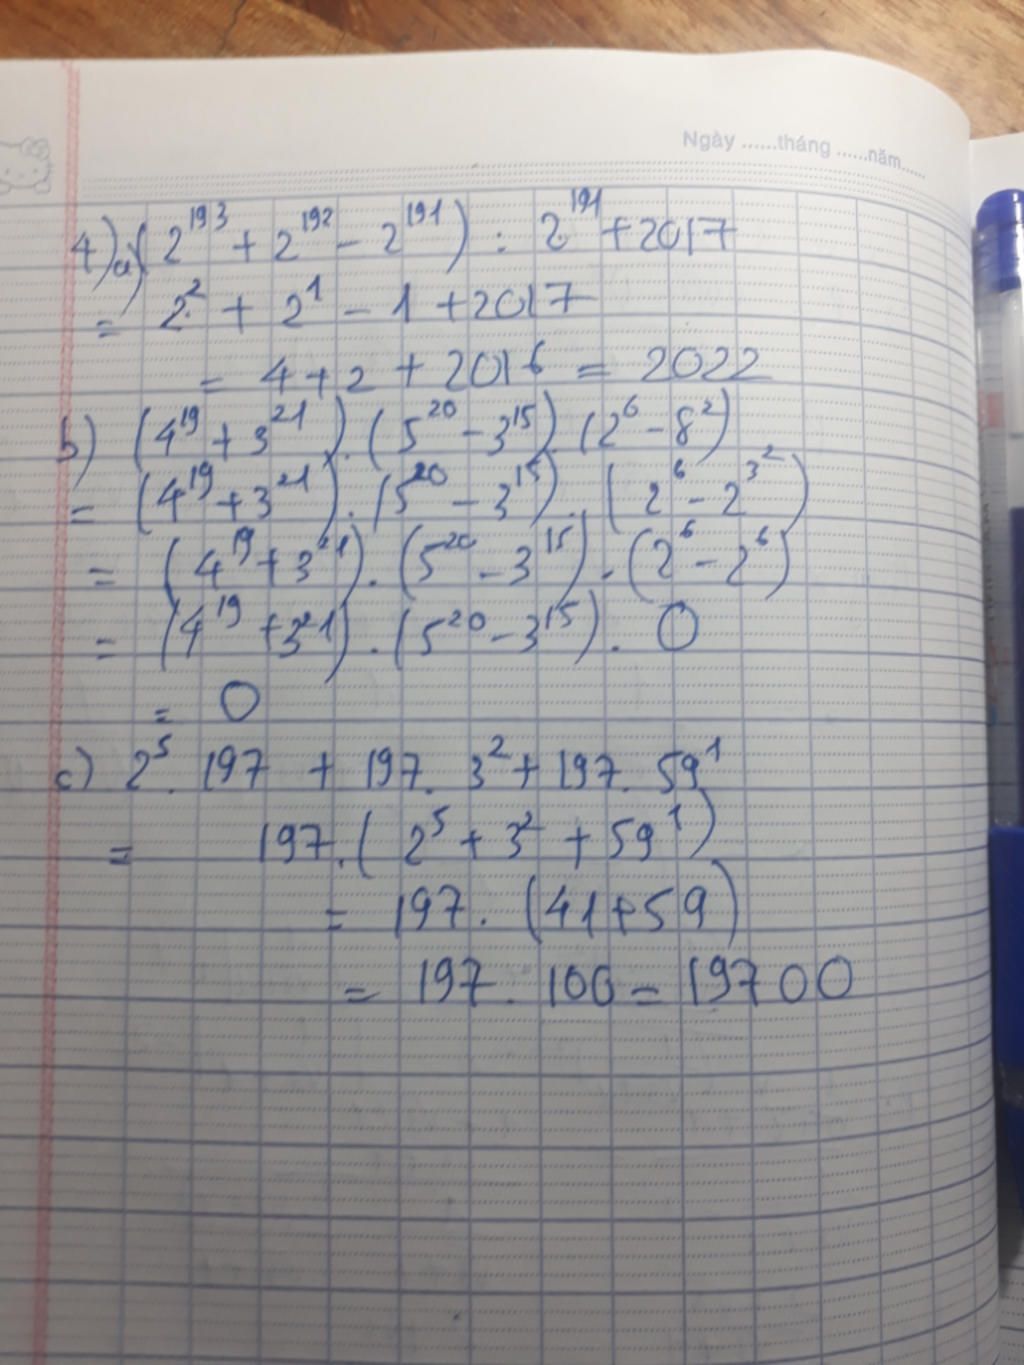 Ngày ......tháng ......năm......
4) a) (2^193 + 2^192 - 2^191) : 2^191 + 2017
= 2^2 + 2^1 - 1 + 2017
= 4 + 2 + 2016 = 2022
b) (4^19 + 3^21) . (5^20 - 3^15) . (2^6 - 8^2)
= (4^19 + 3^21) . (5^20 - 3^15) . (2^6 - 2^3^2)
= (4^19 + 3^21) . (5^20 - 3^15) . (2^6 - 2^6)
= (4^19 + 3^21) . (5^20 - 3^15) . 0
= 0
c) 2^5 . 197 + 197 . 3^2 + 197 . 59^1
= 197 . (2^5 + 3^2 + 59^1)
= 197 . (41 + 59)
= 197 . 100 = 19700